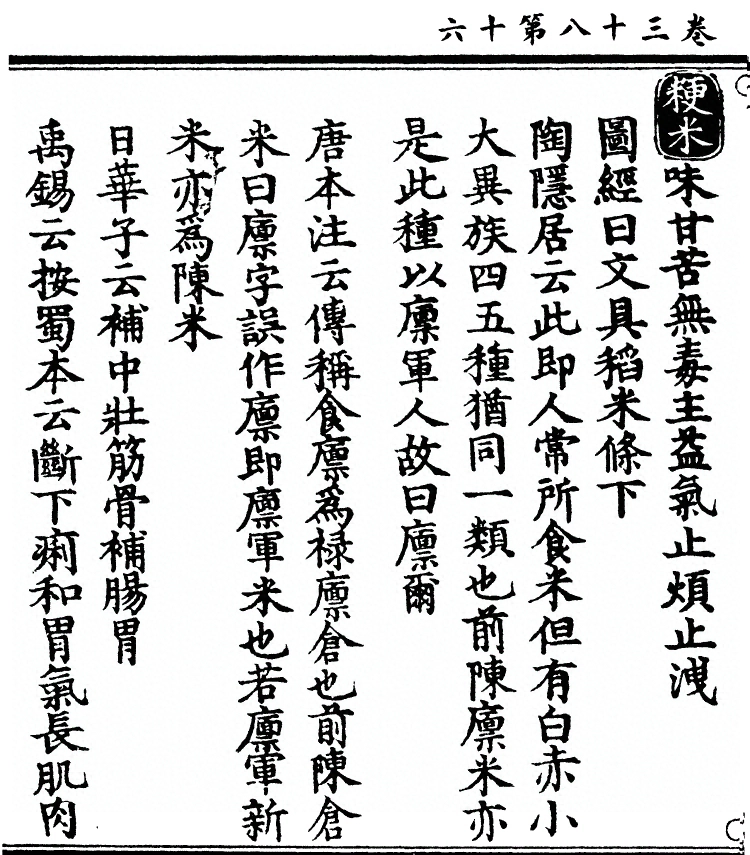 卷三十八第十六
粳米味甘苦無毒主益氣止煩止洩
圖經曰文具稻米條下
陶隱居云此即人常所食米但有白赤小
大異族四五種猶同一類也前陳廪米亦
是此種以廪軍人故曰廪爾
唐本注云傳稱食廪為祿廪倉也前陳倉
米曰廪字誤作廪即廪軍米也若廪軍新
米亦為陳米
日華子云補中壯筋骨補腸胃
禹錫云按蜀本云斷下痢和胃氣長肌肉